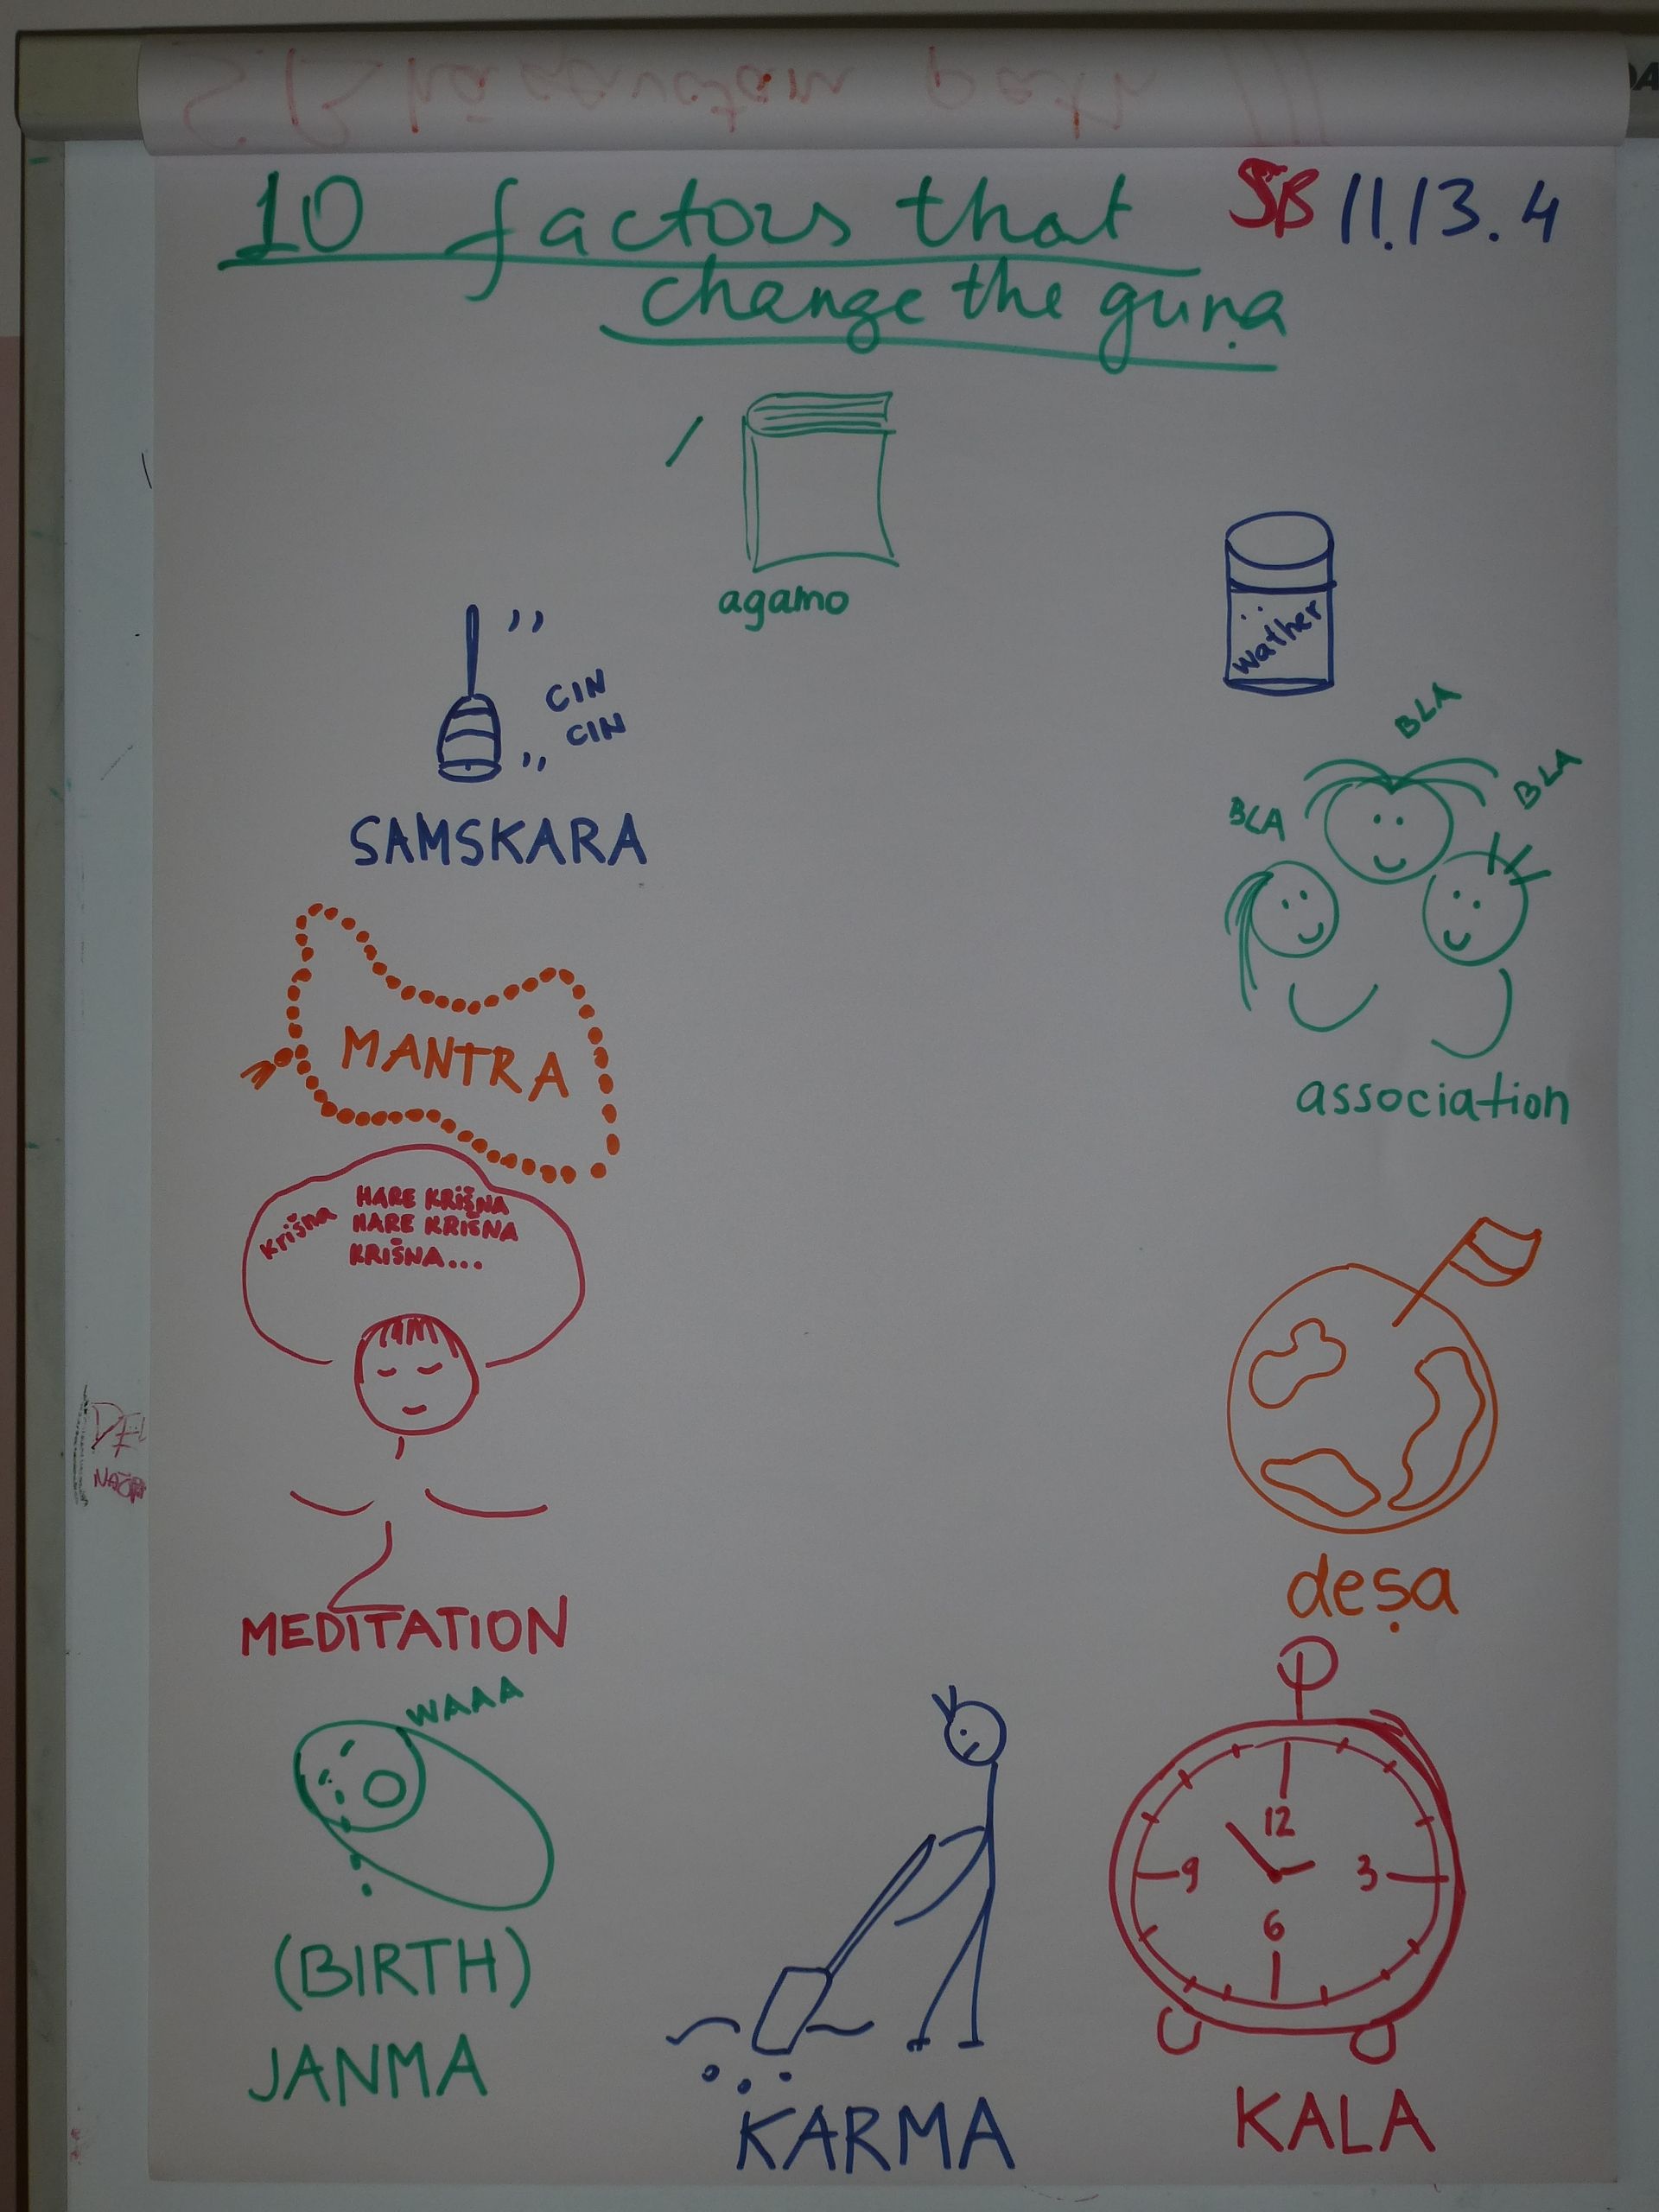 10 factors that
change the guṇa
SB 11.13.4
agamo
wather
CIN
CIN
SAMSKARA
BLA
BLA
BLA
association
MANTRA
Krišna
HARE KRIŠNA
HARE KRIŠNA
KRIŠNA...
MEDITATION
deṣa
WAAA
(BIRTH)
JANMA
KARMA
12
9
3
6
KALA